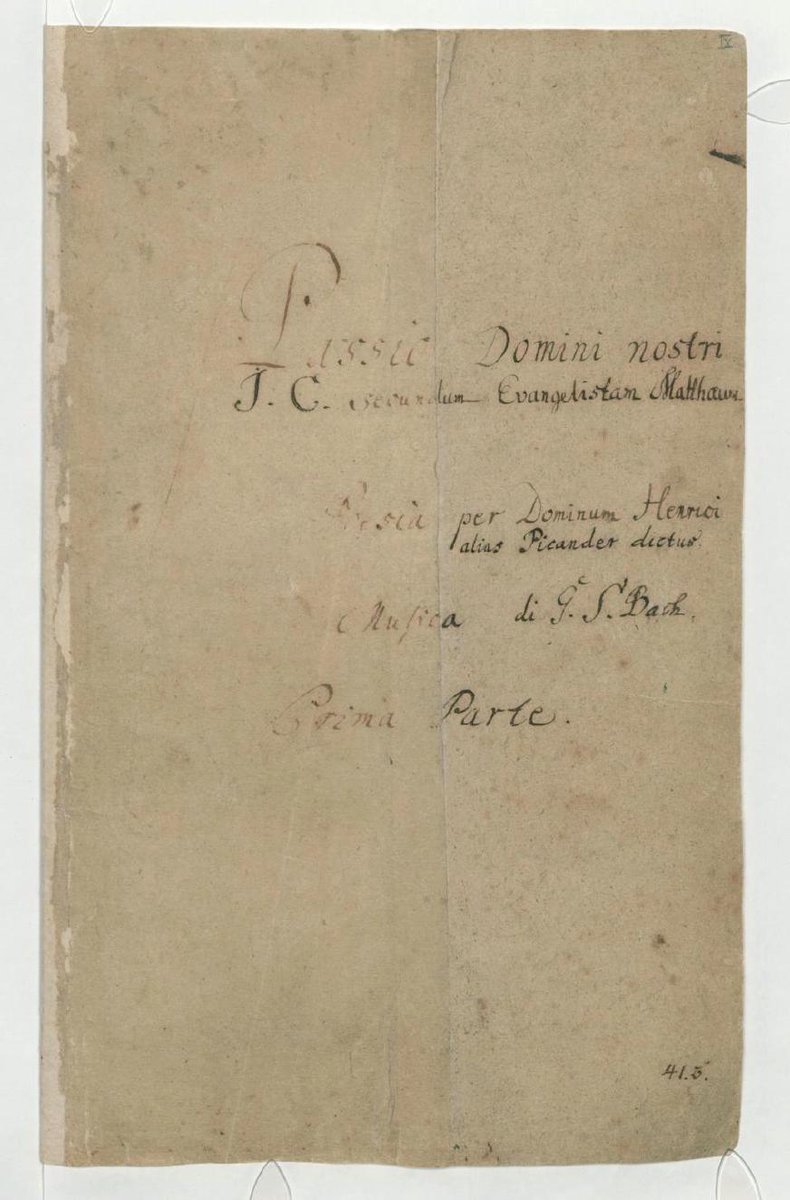 IX
Passio Domini nostri
J. C. secundum Evangelistam Matthæum
Poesia per Dominum Henrici
alias Picander dictus.
Musica di G. S. Bach.
Prima Parte.
41.3.